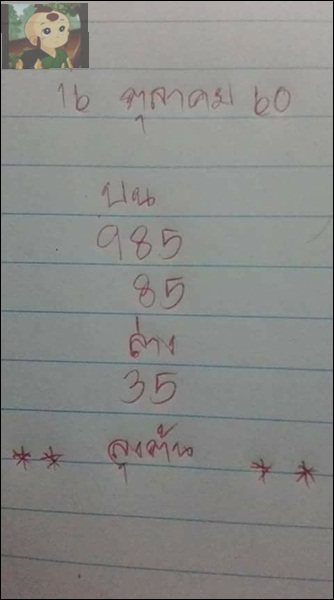 16 ตุลาคม 60
บน
985
85
ล่าง
35
** ลุงต้น **